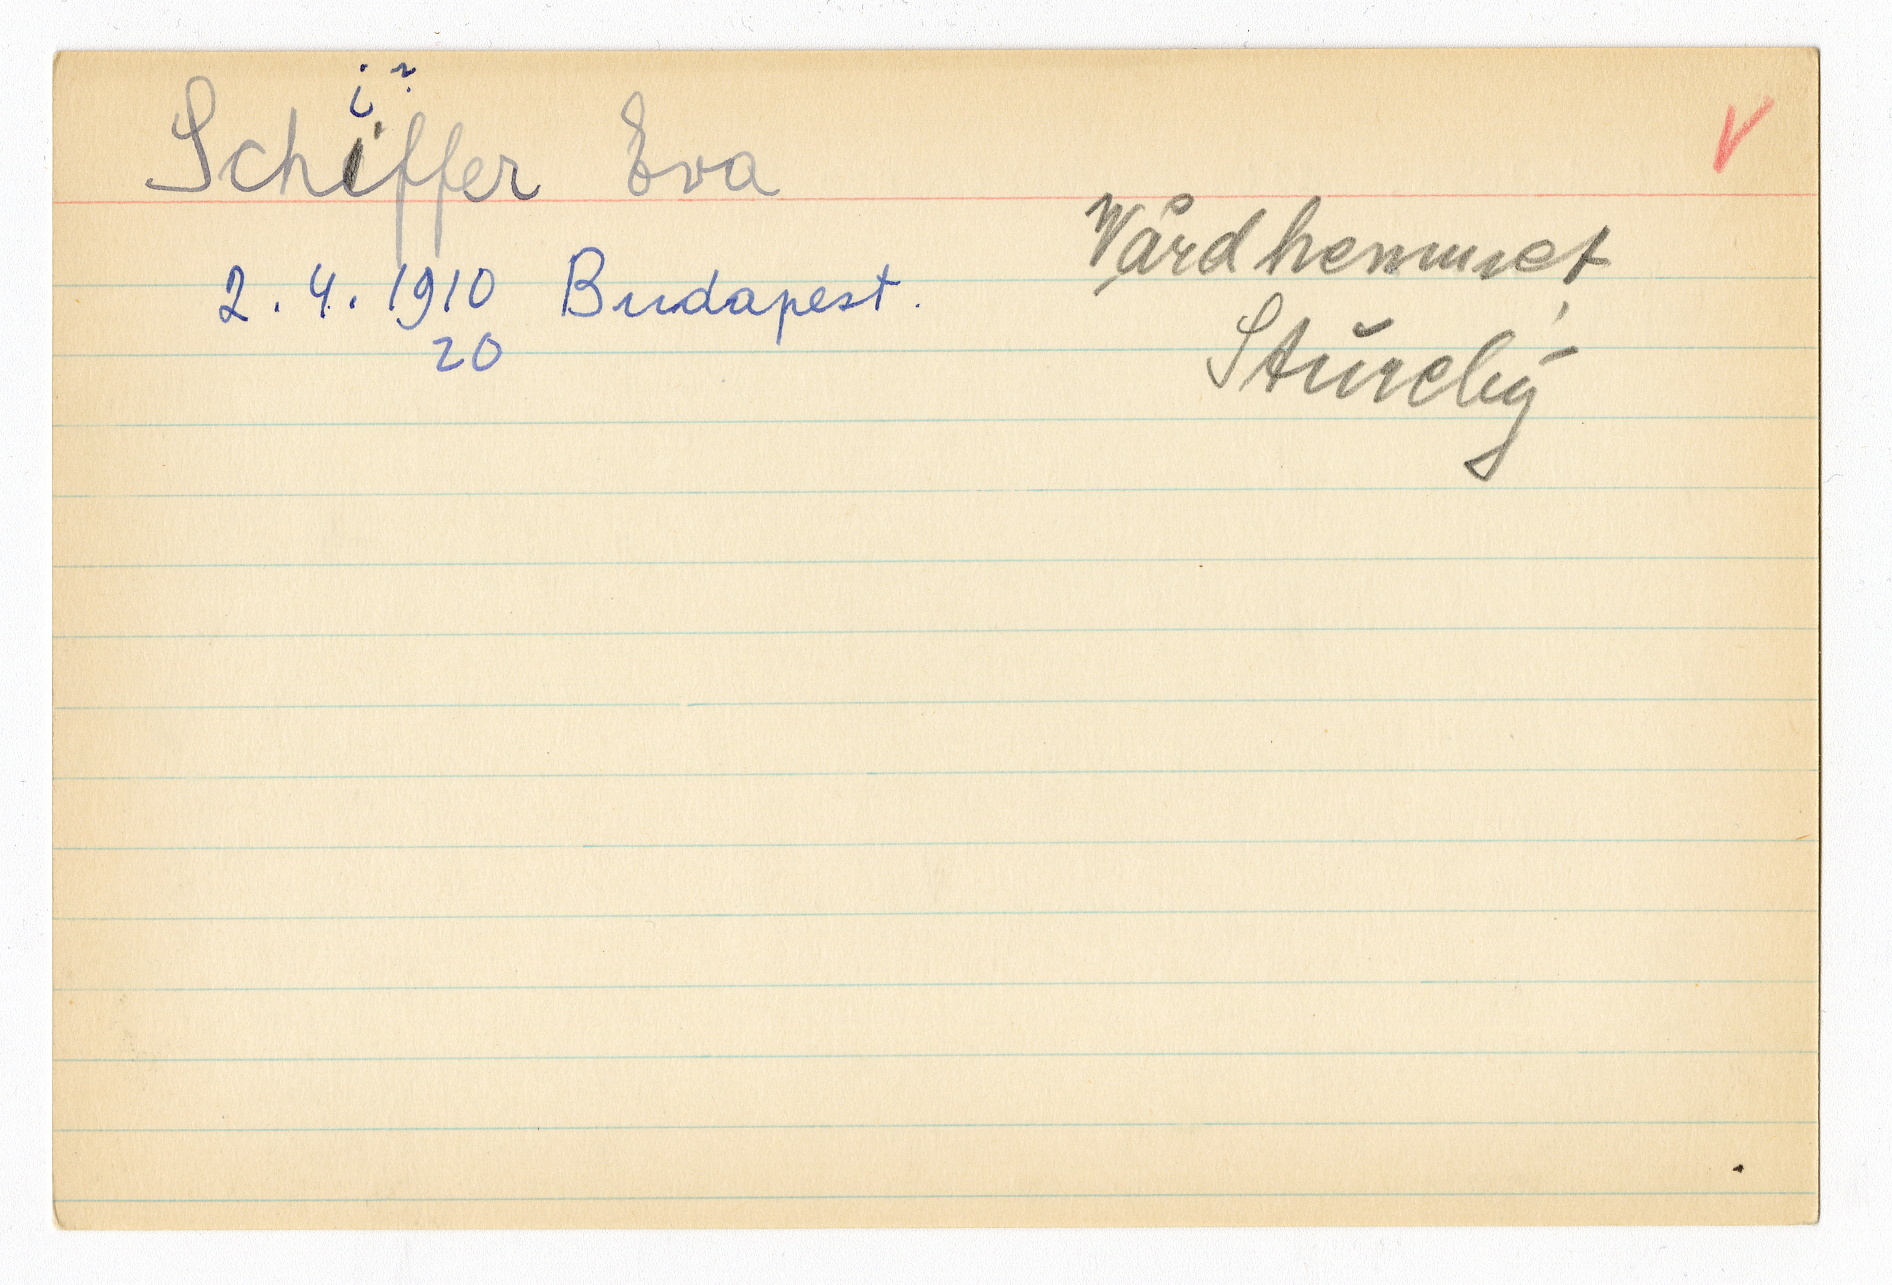 i ?
Schiffer Eva
V
Vårdhemmet,
2.4.1910 Budapest.
20
Stureby